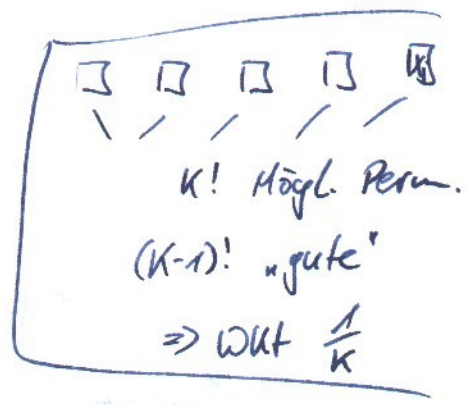 K! Mögl. Perm.
(K-1)! "gute"
=> Wkt 1/K